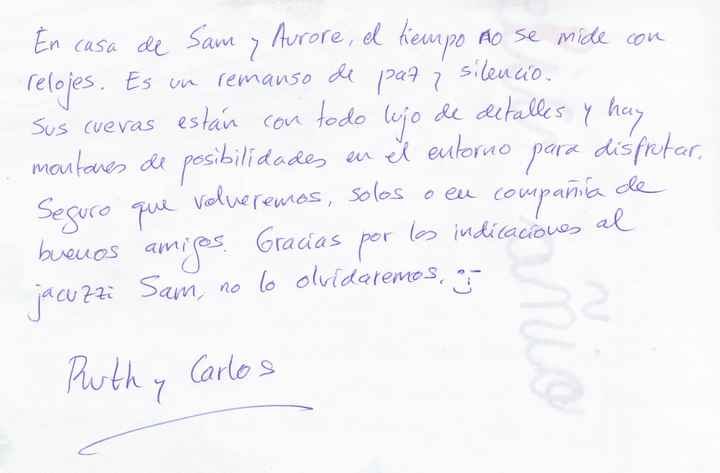 En casa de Sam y Aurore, el tiempo no se mide con
relojes. Es un remanso de paz y silencio.
Sus cuevas están con todo lujo de detalles y hay
montones de posibilidades en el entorno para disfrutar.
Seguro que volveremos, solos o en compañía de
buenos amigos. Gracias por las indicaciones al
jacuzzi Sam, no lo olvidaremos. :)
Ruth y Carlos